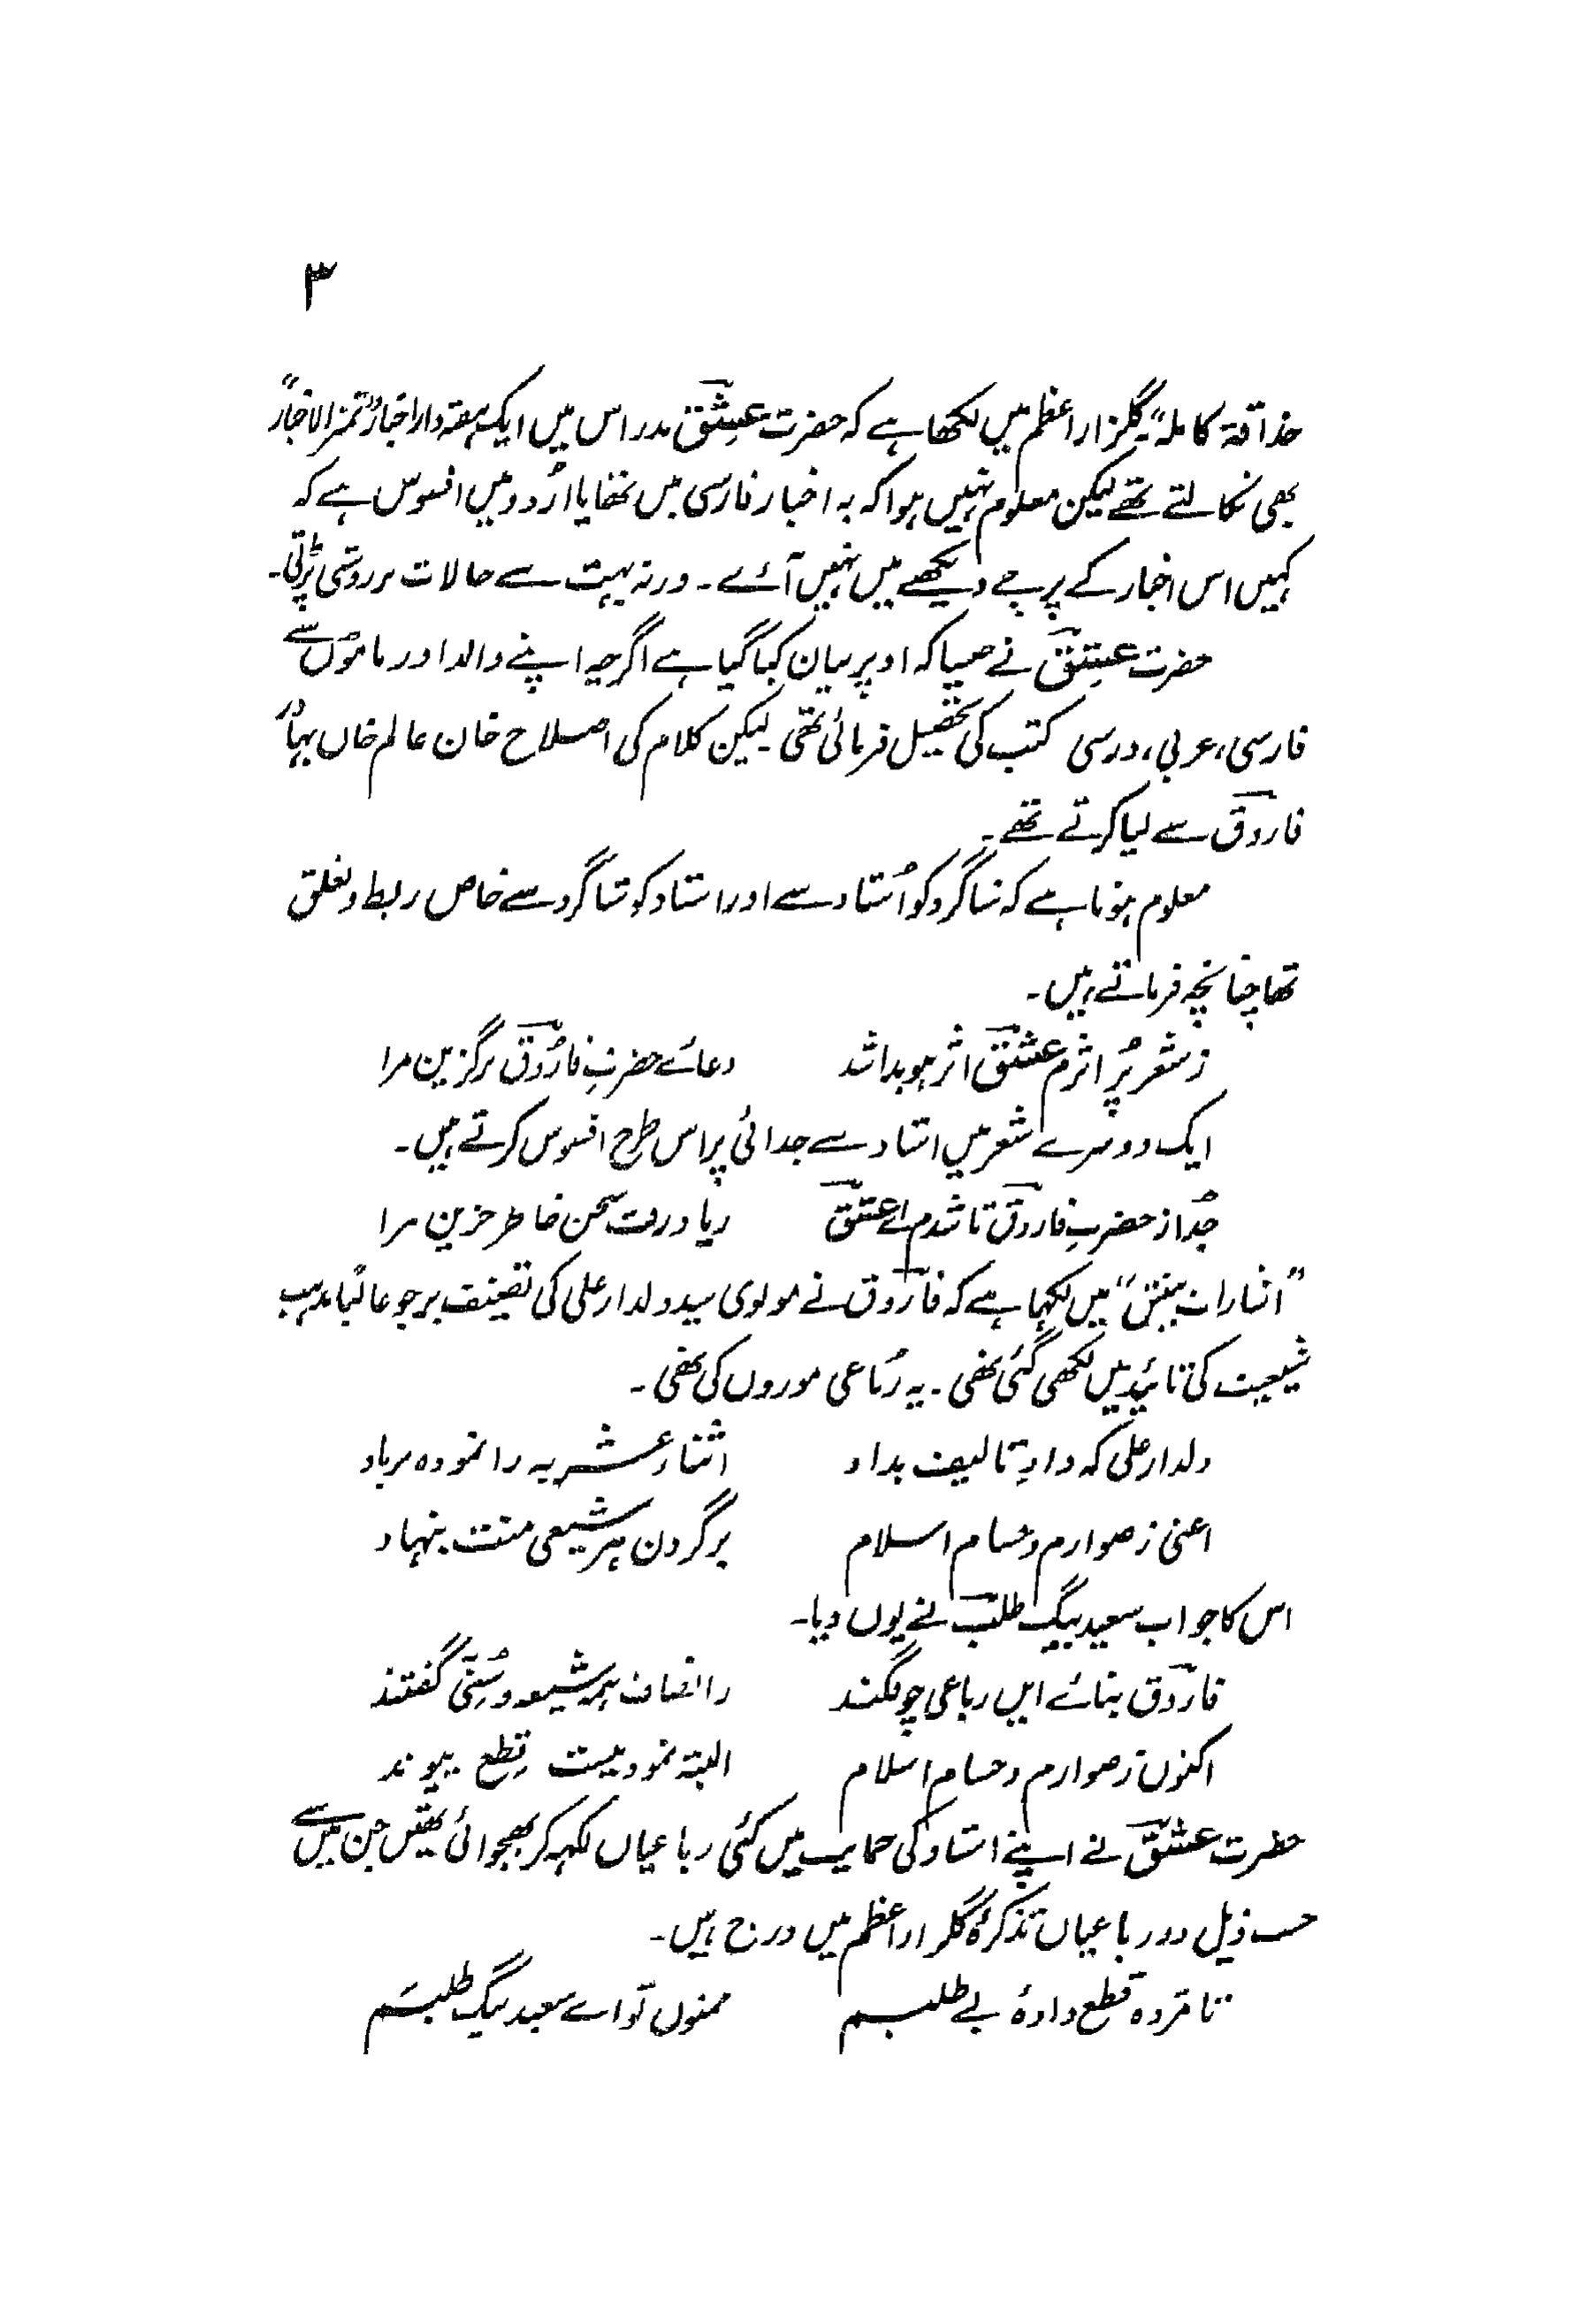 ۳
حذاقۃ کاملہ" گلزار اعظم میں لکھا ہے کہ حضرت عشقؔ مدراس میں ایک ہفتہ دار اخبار "تمر الاخبار"
بھی نکالتے تھے لیکن معلوم نہیں ہوا کہ یہ اخبار فارسی میں تھا یا اُردو میں افسوس ہے کہ
کہیں اس اخبار کے پرچے دیکھنے میں نہیں آئے۔ ورنہ بہت سے حالات پر روشنی پڑتی۔
حضرت عشقؔ نے جیسا کہ اوپر بیان کیا گیا ہے اگرچہ اپنے والد اور ماموں سے
فارسی، عربی، درسی کتب کی تحصیل فرمائی تھی لیکن کلام کی اصلاح خان عالم خاں بہادر
فاروقؔ سے لیا کرتے تھے۔
معلوم ہوتا ہے کہ شاگرد کو اُستاد سے اور استاد کو شاگرد سے خاص ربط و تعلق
تھا چنانچہ فرماتے ہیں۔
ز شعر پُر اثرم عشقؔ اثر ہویدا شد دعائے حضرتِ فارُوقؔ برگزین مرا
ایک دوسرے شعر میں استاد سے جدائی پر اس طرح افسوس کرتے ہیں۔
جُدا از حضرتِ فاروقؔ تا شدم اے عشقؔ زیاد رفت سخن خاطر حزین مرا
"اشارات بینش" میں لکہا ہے کہ فاروقؔ نے مولوی سید دلدار علی کی تصنیف پر جو غالباً مذہب
شیعیت کی تائید میں لکھی گئی تھی۔ یہ رُباعی موزوں کی تھی۔
دلدار علی کہ دادِ تالیف بداد اثنا و عشریہ را نمودہ برباد
اعنی ز صوارم و حسام اسلام بر گردن ہر شیعی منت بنہاد
اس کا جواب سعید بیگ طلبؔ نے یوں دیا۔
فاروقؔ بنائے ایں رباعی چو فگند زانصاف ہمہ شیعہ و سُنّی گفتند
اکنوں ز صوارم و حسام اسلام البتہ نمودیست قطع پیوند
حضرت عشقؔ نے اپنے استاد کی حمایت میں کئی رباعیاں لکہہ کر بھجوائی تھیں جن میں سے
حسب ذیل دو رباعیاں تذکرۂ گلزار اعظم میں درج ہیں۔
تا مژدہ قطع دادۂ بے طلبم ممنوں تو اے سعید بیگ طلبم